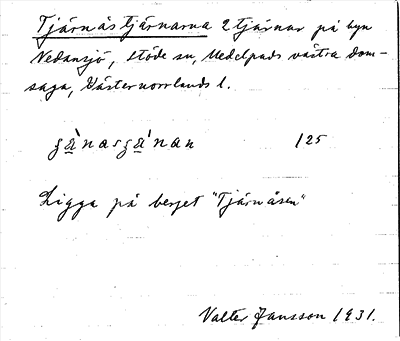 Tjärnåstjärnarna 2 tjärnar på byn
Nedansjö, Stöde sn, Medelpads västra dom-
saga, Västernorrlands l.
125
Ligga på berget "Tjärnåsen"
Valter Jansson 1931.